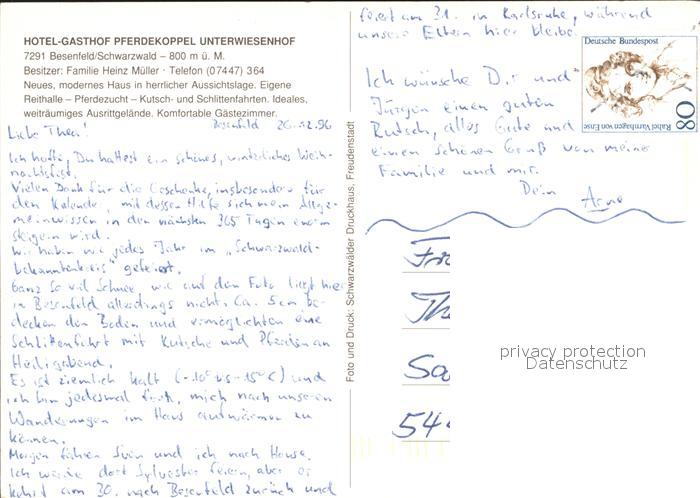 HOTEL-GASTHOF PFERDEKOPPEL UNTERWIESENHOF
7291 Besenfeld/Schwarzwald – 800 m ü. M.
Besitzer: Familie Heinz Müller · Telefon (07447) 364
Neues, modernes Haus in herrlicher Aussichtslage. Eigene
Reithalle – Pferdezucht – Kutsch- und Schlittenfahrten. Ideales,
weiträumiges Ausrittgelände. Komfortable Gästezimmer.
Besenfeld 26.12.96
Liebe Thea!
Ich hoffe, Du hattest ein schönes, winterliches Weih-
nachtsfest.
Vielen Dank für die Geschenke, insbesondere für
den Kalender, mit dessen Hilfe sich mein Allge-
meinwissen in den nächsten 365 Tagen enorm
steigern wird.
Wir haben wie jedes Jahr im „Schwarzwald-
bekanntenkreis" gefeiert.
Ganz so viel Schnee, wie auf dem Foto liegt hier
in Besenfeld allerdings nicht. Ca. 5cm be-
decken den Boden und ermöglichten eine
Schlittenfahrt mit Kutsche und Pferden an
Heiligabend.
Es ist ziemlich kalt (-10° bis -15°C) und
ich bin jedesmal froh, mich nach unseren
Wanderungen im Haus aufwärmen zu
können.
Morgen fahren Sven und ich nach Hause.
Ich werde dort Sylvester feiern, aber er
kehrt am 30. nach Besenfeld zurück und
Foto und Druck: Schwarzwälder Druckhaus, Freudenstadt
feiert am 31. in Karlsruhe, während
unsere Eltern hier bleiben.
Ich wünsche Dir und
Jürgen einen guten
Rutsch, alles Gute und
einen schönen Gruß von meiner
Familie und mir.
Dein Arne
Deutsche Bundespost
80
Rahel Varnhagen von Ense
privacy protection
Datenschutz